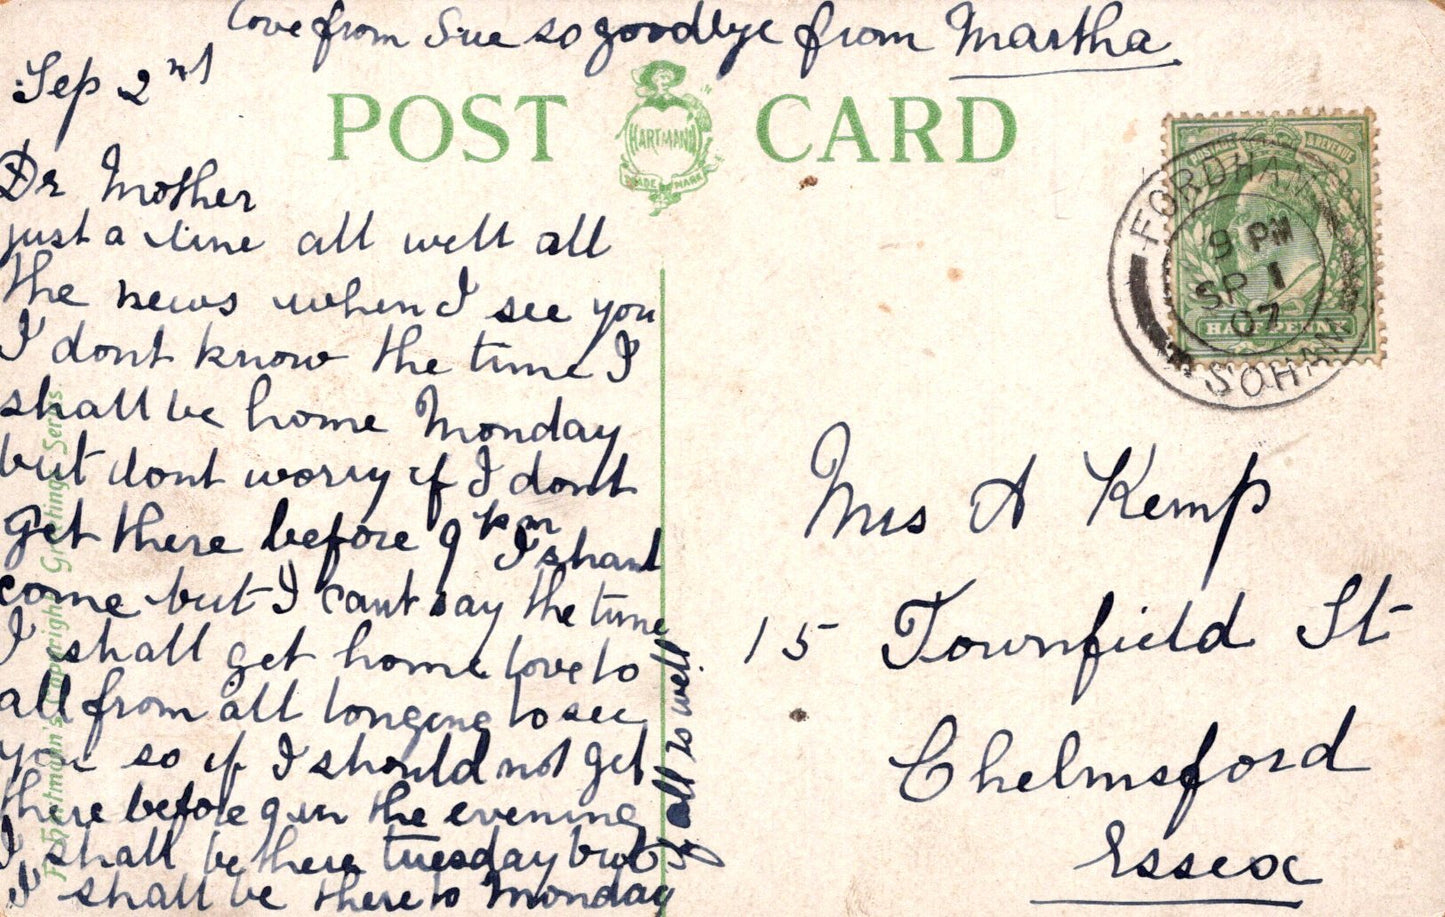 love from Sue so goodbye from Martha
Sep 2nd
POST CARD
HARTMANN
TRADE MARK
Dr Mother
just a line all well all
the news when I see you
I dont know the time I
shall be home Monday
but dont worry if I dont
get there before 9 pm I shant
come but I cant say the time
I shall get home love to
all from all longing to see
you so if I should not get
there before 9 in the evening
I shall be there tuesday but
I shall be there to Monday
if all is well.
Hartmann's Copyright Greetings Series
POSTAGE & REVENUE
HALF PENNY
FORDHAM
9 PM
SP 1
07
SOHAM
Mrs A Kemp
15 Townfield St
Chelmsford
Essex